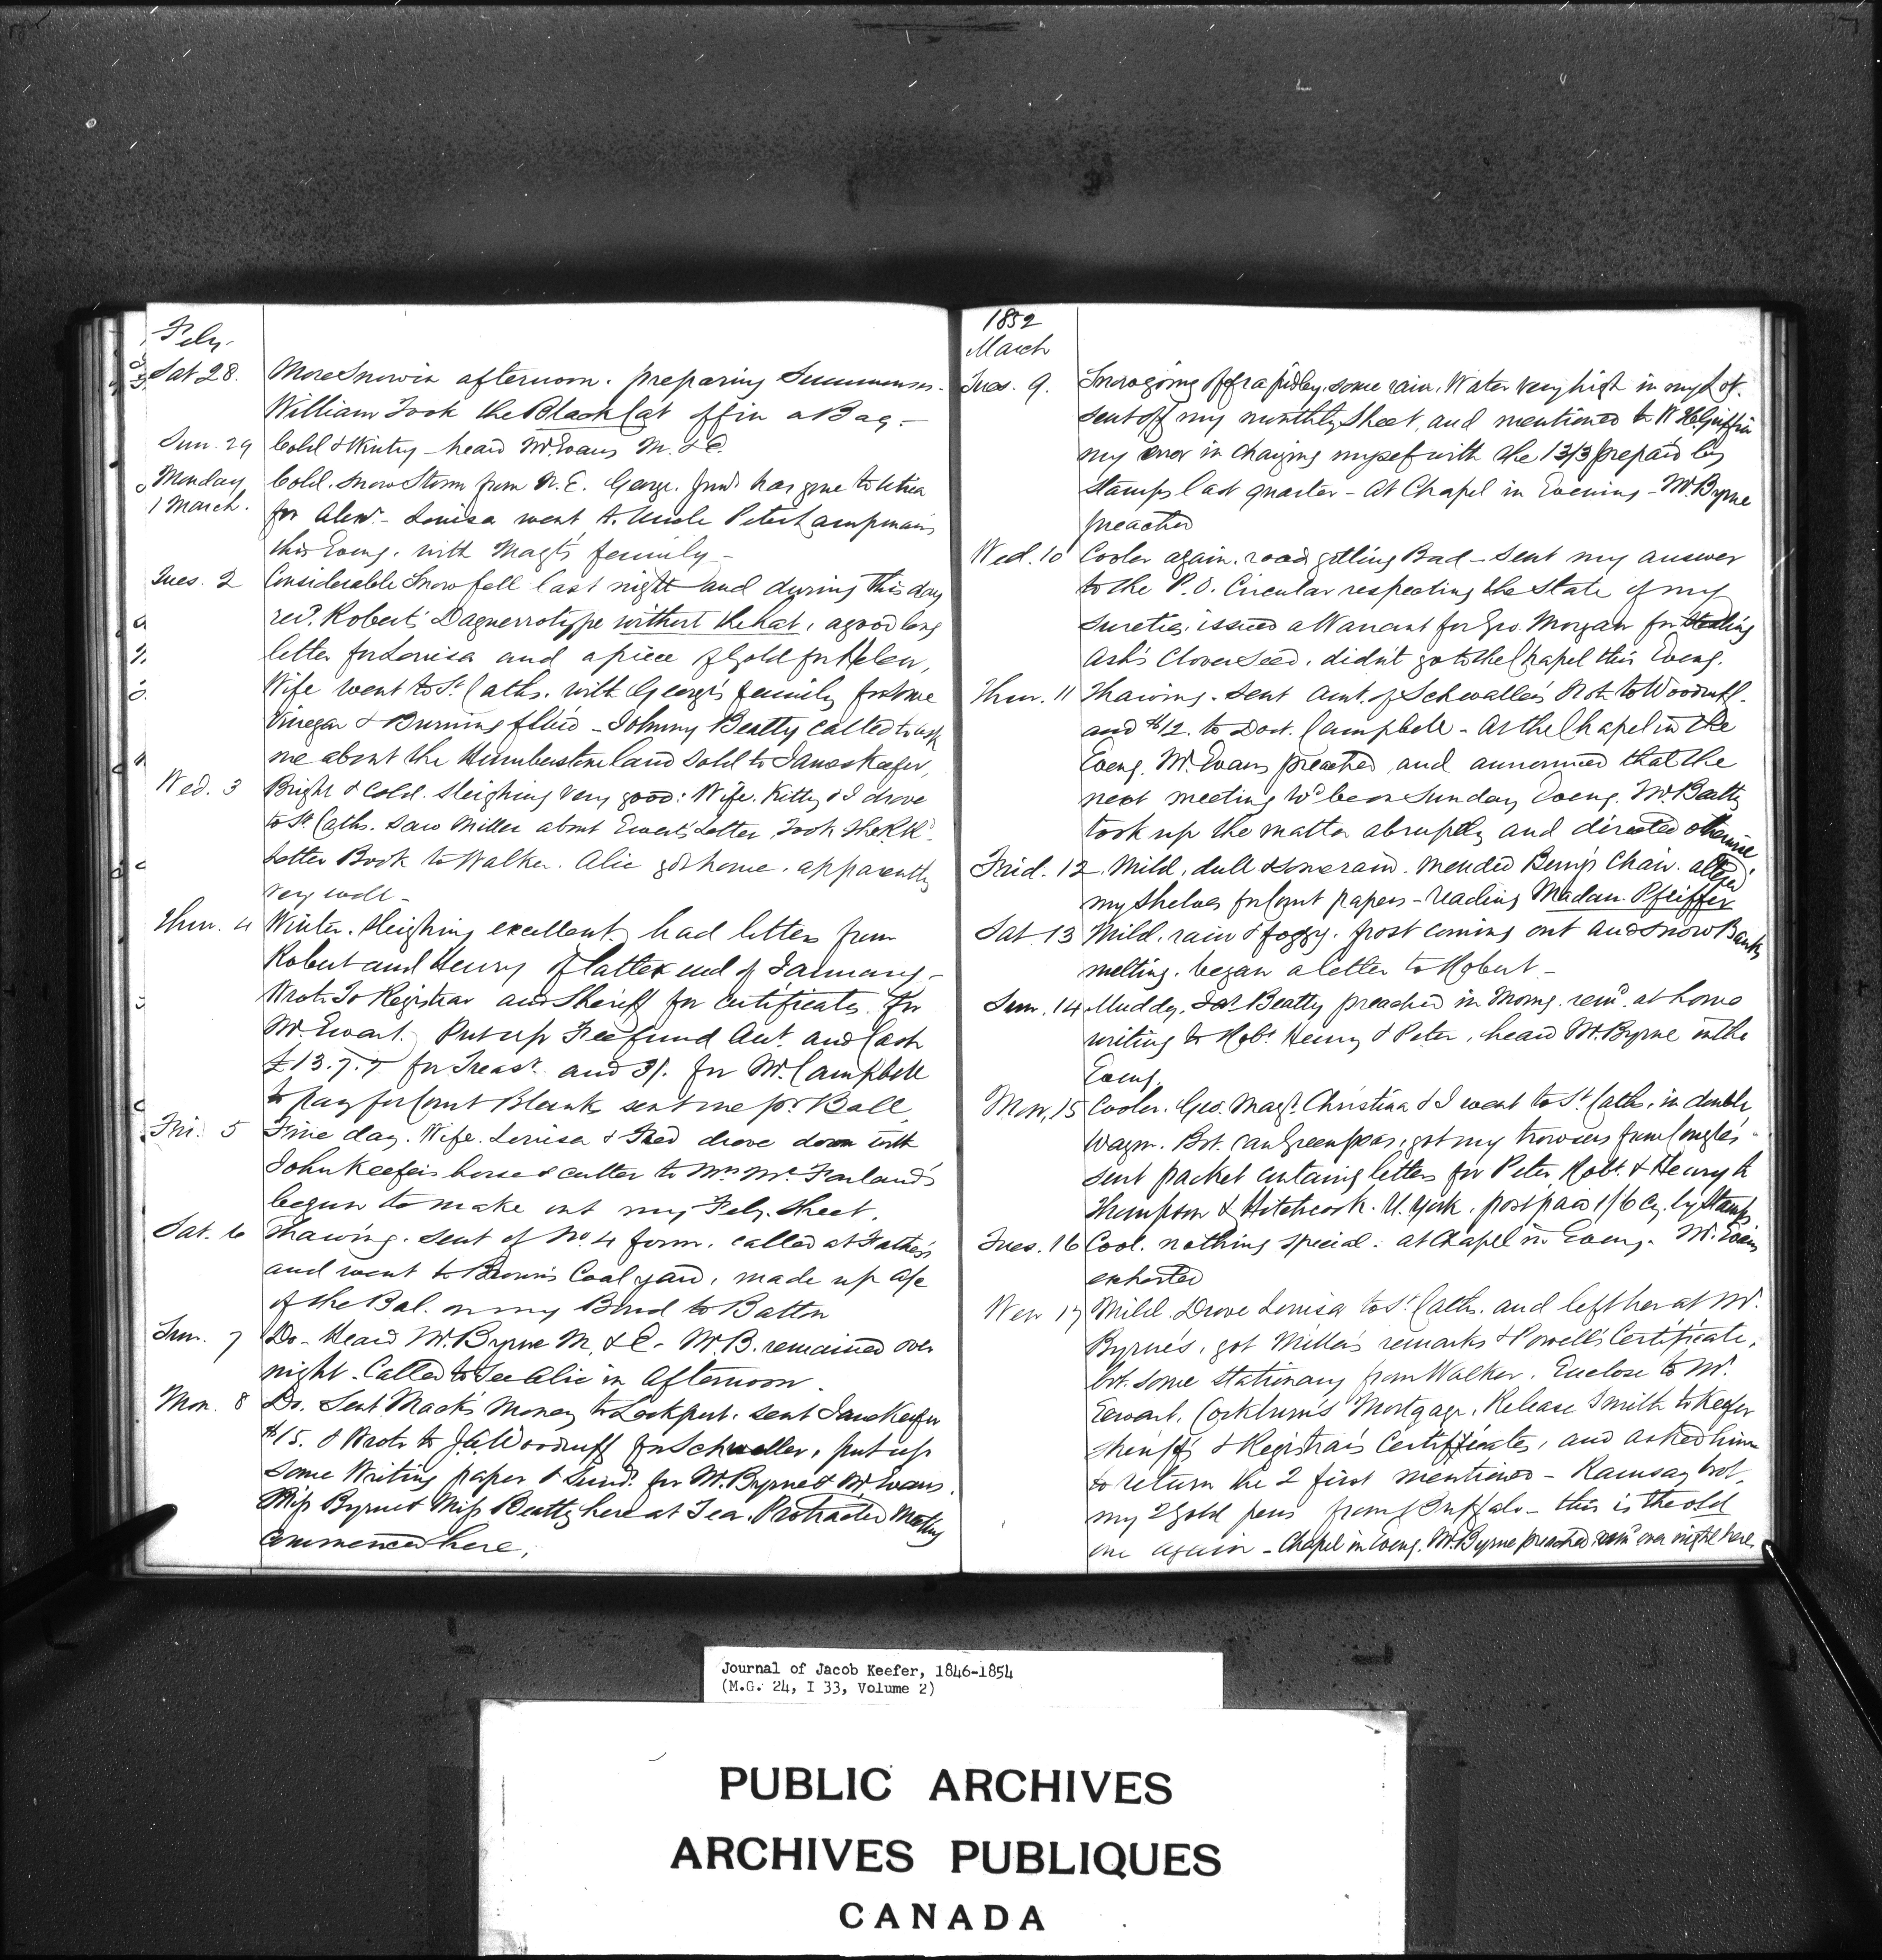 Feby.
Sat 28. More Snow in afternoon. preparing Summonses.
William Took the Black Cat off in a Bag.—
Sun. 29 Cold & Wintry — heard Mr. Evans M. & E.
Monday Cold. Snow Storm from N. E. George. Junr. has gone to Utica
1 March. for Alexr. — Louisa went to Uncle Peter Lampman's
this Eveng. with Magt's family —
Tues. 2 Considerable Snow fell last night and during this day
recd. Robert's Daguerrotype without the hat, a good long
letter for Louisa and a piece of Gold for Helen,
Wife went to St. Caths. with George's family for some
Vinegar & Burning fluid — Johnny Beatty called to ask
me about the Humberstone land sold to James Keefer,
Wed. 3 Bright & Cold. Sleighing very good: Wife. Kitty & I drove
to St. Caths. Saw Miller about Ewart's Letter Took the R.Rd.
Letter Book to Walker. Alic got home. apparently
very well —
Thur. 4 Winter. Sleighing excellent. had letters from
Robert and Henry of latter end of January —
Wrote To Registrar and Sheriff for Certificates for
Mr. Ewart. Put up Fee fund Act. and Cash
£13.7.7 for Treasr. and 3/. for Mr. Campbell
to pay for Court Blank sent me pr. Ball
Fri. 5 Fine day. Wife. Louisa & Fred drove down with
John Keefer's horse & cutter to Mrs. McFarland's
begun to make out my Feby. Sheet.
Sat. 6 Thawing. Sent of No. 4 form. called at Father's
and went to Brown's Coal yard, made up a/c
of the Bal. on my Bond to Batton
Sun. 7 Do — Heard Mr. Byrne M. & E — Mr. B. remained over
night. Called to See Alic in Afternoon.
Mon. 8 Do. Sent Mack's Money to Lockport. sent Jane Keefer
$15. & Wrote to J.A. Woodruff for Schwaller, put up
Some Writing paper & Sund. for Mr. Byrne & Mr. Evans.
Miss Byrne & Miss Beatty here at Tea. Protracted Meeting
Commenced here.
1852
March
Tues. 9. Snow going off rapidly. some rain. Water very high in my Lot.
sent off my monthly Sheet, and mentioned to W H Griffin
my error in charging myself with the 13/3 prepaid by
stamps last quarter — At Chapel in Evening — Mr. Byrne
preached
Wed. 10 Cooler again. road getting Bad — Sent my answer
to the P.O. Circular respecting the State of my
Sureties, issued a Warrant for Geo. Morgan for Stealing
Ash's Clover Seed. didn't go to the Chapel this Eveng.
Thur. 11 Thawing. Sent Amt. of Schwaller's Note to Woodruff
and $12. to Doct. Campbell — At the Chapel in the
Eveng. Mr. Evans preached and announced that the
next meeting wd. be on Sunday Eveng. Mr. Beatty
took up the matter abruptly and directed otherwise
Frid. 12. Mild, dull & some rain. mended Benj's Chair. altered
my Shelves for Court papers — reading Madam. Pfeiffer
Sat. 13 Mild. rain & foggy. frost coming out and snow Banks
melting. began a letter to Robert —
Sun. 14 Muddy, Beatty preached in Morng. remd. at home
writing to Robt. Henry & Peter, heard Mr. Byrne in the
Eveng.
Mon, 15 Cooler. Geo. Magt. Christina & I went to St. Caths. in double
Wagon. Bot. can Green peas, got my trowsers from
Sent packet containing letters for Peter, Robt. & Henry to
Thompson & Hitchcock. N. York. postpaid 1/6 Cy. by Stamps
Tues. 16 Cool. nothing special. at Chapel in Eveng. Mr. Evans
exhorted
Wed 17 Mild. Drove Louisa to St. Caths. and left her at Mr.
Byrne's, got Miller's remarks & Powell's Certificate,
bot. some Stationary from Walker. Enclose to Mr.
Eewart, Cockburn's Mortgage, Release Smith to Keefer
Sheriff's & Registrar's Certificates, and asked him
to return the 2 first mentioned — Ramsay brot.
my 2 Gold pens from Buffalo — this is the old
one again — Chapel in Eveng. Mr. Byrne preached remd. over night here
Journal of Jacob Keefer, 1846-1854
(M.G. 24, I 33, Volume 2)
PUBLIC ARCHIVES
ARCHIVES PUBLIQUES
CANADA